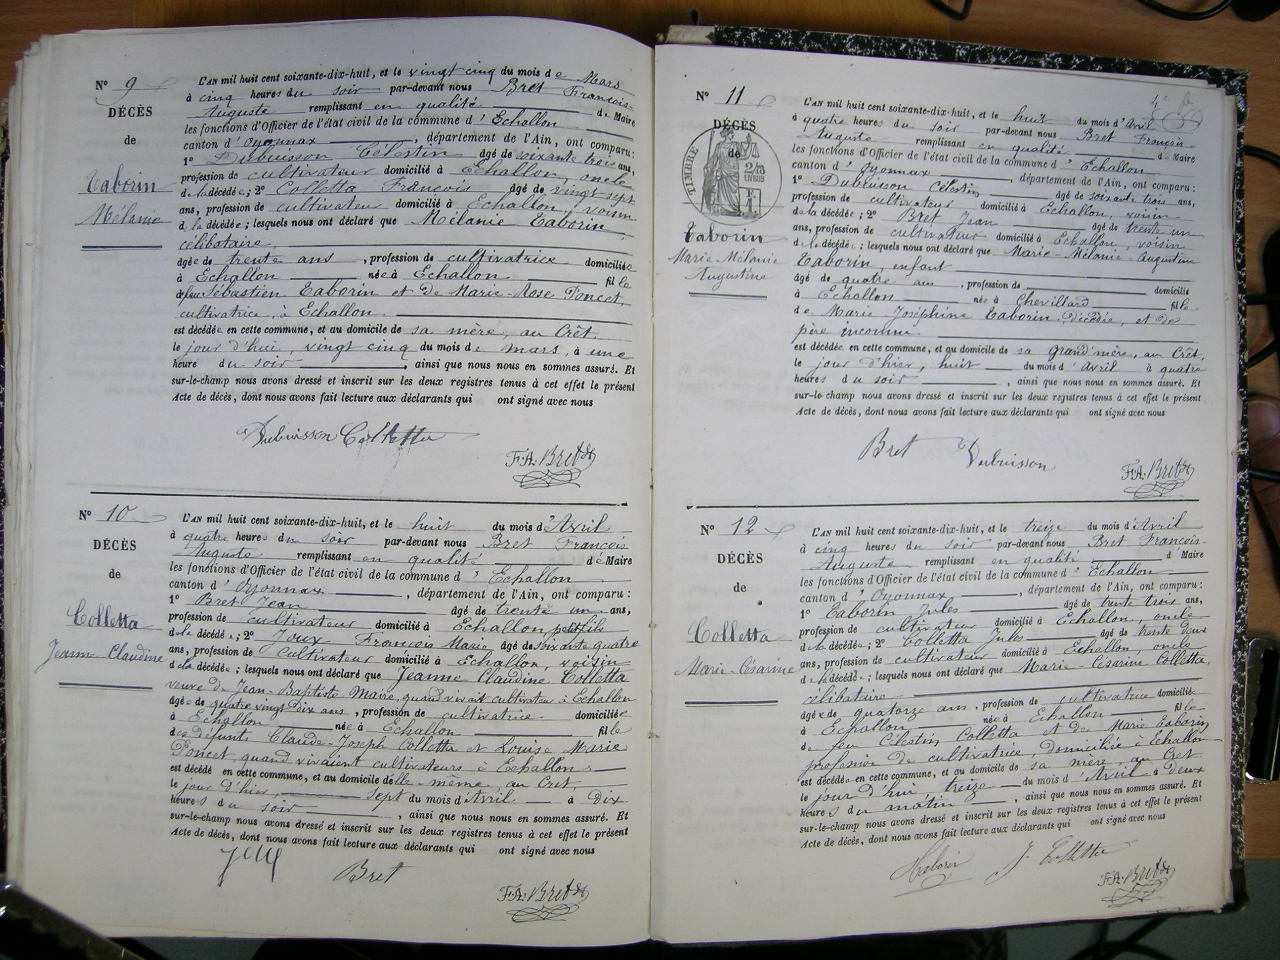 N° 9
DÉCÈS
de
Taborin
Mélanie
L'AN mil huit cent soixante-dix-huit, et le vingt cinq du mois de Mars
à cinq heures du soir par-devant nous Bret François-
Auguste remplissant en qualité de Maire
les fonctions d'Officier de l'état civil de la commune d'Echallon
canton d'Oyonnax, département de l'Ain, ont comparu:
1° Dubuisson Célestin âgé de soixante trois ans,
profession de cultivateur domicilié à Echallon, oncle
de la décédée; 2° Colletta François âgé de vingt sept
ans, profession de cultivateur domicilié à Echallon, voisin
de la décédée; lesquels nous ont déclaré que Mélanie Taborin,
célibataire,
âgée de trente ans, profession de cultivatrice domiciliée
à Echallon née à Echallon fille
de feu Sébastien Taborin et de Marie-Rose Poncet,
cultivatrice, à Echallon.
est décédée en cette commune, et au domicile de sa mère, au Crêt.
le jour d'hui, vingt cinq du mois de mars, à une
heure du soir, ainsi que nous nous en sommes assuré. Et
sur-le-champ nous avons dressé et inscrit sur les deux registres tenus à cet effet le présent
Acte de décès, dont nous avons fait lecture aux déclarants qui ont signé avec nous
Dubuisson Colletta
F.A. Bret
N° 10
DÉCÈS
de
Colletta
Jeanne Claudine
L'AN mil huit cent soixante-dix-huit, et le huit du mois d'Avril
à quatre heures du soir par-devant nous Bret François
Auguste remplissant en qualité de Maire
les fonctions d'Officier de l'état civil de la commune d'Echallon
canton d'Oyonnax, département de l'Ain, ont comparu:
1° Bret Jean âgé de trente un ans,
profession de cultivateur domicilié à Echallon, petit fils
de la décédée; 2° Joux François Marie, âgé de soixante quatre
ans, profession de cultivateur domicilié à Echallon, voisin
de la décédée; lesquels nous ont déclaré que Jeanne Claudine Colletta
veuve de Jean-Baptiste Maire, quand vivait cultivateur à Echallon
âgée de quatre vingt dix ans, profession de cultivatrice domiciliée
à Echallon née à Echallon fille
des défunts Claude-Joseph Colletta et Louise Marie
Poncet, quand vivaient cultivateurs à Echallon
est décédé en cette commune, et au domicile d'elle même, au Crêt,
le jour d'hier, sept du mois d'Avril à dix
heures du soir, ainsi que nous nous en sommes assuré. Et
sur-le-champ nous avons dressé et inscrit sur les deux registres tenus à cet effet le présent
Acte de décès, dont nous avons fait lecture aux déclarants qui ont signé avec nous
Bret
F.A. Bret
N° 11
DÉCÈS
de
TIMBRE
Taborin
Marie-Mélanie
Augustine
L'AN mil huit cent soixante-dix-huit, et le huit du mois d'Avril
à quatre heures du soir par-devant nous Bret François
Auguste remplissant en qualité de Maire
les fonctions d'Officier de l'état civil de la commune d'Echallon
canton d'Oyonnax, département de l'Ain, ont comparu:
1° Dubuisson Célestin âgé de soixante trois ans,
profession de cultivateur domicilié à Echallon, voisin
de la décédée; 2° Bret Jean âgé de trente un
ans, profession de cultivateur domicilié à Echallon, voisin
de la décédée; lesquels nous ont déclaré que Marie-Mélanie-Augustine
Taborin, enfant
âgé de quatre ans, profession de domicilié
à Echallon née à Chevillard fille
de Marie Joséphine Taborin décédée, et de
père inconnu.
est décédée en cette commune, et au domicile de sa grand'mère, au Crêt,
le jour d'hier, huit du mois d'Avril à quatre
heures du soir, ainsi que nous nous en sommes assuré. Et
sur-le-champ nous avons dressé et inscrit sur les deux registres tenus à cet effet le présent
Acte de décès, dont nous avons fait lecture aux déclarants qui ont signé avec nous
Bret Dubuisson
F.A. Bret
N° 12
DÉCÈS
de
Colletta
Marie-Césarine
L'AN mil huit cent soixante-dix-huit, et le treize du mois d'Avril
à cinq heures du soir par-devant nous Bret François-
Auguste remplissant en qualité de Maire
les fonctions d'Officier de l'état civil de la commune d'Echallon
canton d'Oyonnax, département de l'Ain, ont comparu:
1° Taborin Jules âgé de trente trois ans,
profession de cultivateur domicilié à Echallon, oncle
de la décédée; 2° Colletta Jules âgé de trente deux
ans, profession de cultivateur domicilié à Echallon, oncle
de la décédée; lesquels nous ont déclaré que Marie-Césarine Colletta,
célibataire
âgée de quatorze ans, profession de cultivatrice domiciliée
à Echallon née à Echallon fille
de feu Célestin Colletta et de Marie Taborin
profession de cultivatrice, domiciliée à Echallon
est décédée en cette commune, et au domicile de sa mère, au Crêt
le jour d'hui, treize du mois d'Avril à deux
heures du matin, ainsi que nous nous en sommes assuré. Et
sur-le-champ nous avons dressé et inscrit sur les deux registres tenus à cet effet le présent
Acte de décès, dont nous avons fait lecture aux déclarants qui ont signé avec nous
Taborin J. Colletta
F.A. Bret